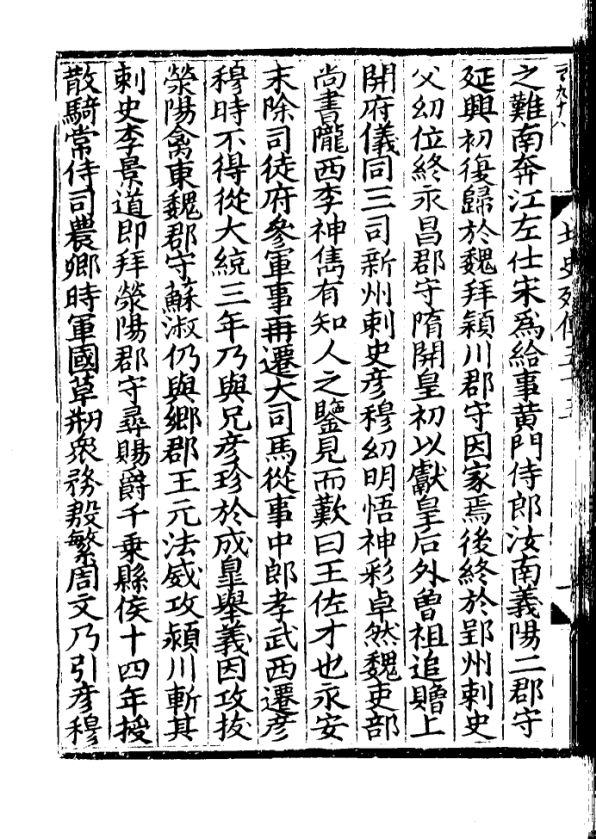 北史列傳五十五
之難南奔江左仕宋爲給事黃門侍郎汝南義陽二郡守
延興初復歸於魏拜潁川郡守因家焉後終於郢州刺史
父幼位終永昌郡守隋開皇初以獻皇后外曾祖追贈上
開府儀同三司新州刺史彥穆幼明悟神彩卓然魏吏部
尚書隴西李神儁有知人之鑒見而歎曰王佐才也永安
末除司徒府參軍事再遷大司馬從事中郎孝武西遷彥
穆時不得從大統三年乃與兄彥珍於成皇舉義因攻拔
滎陽禽東魏郡守蘇淑仍與鄉郡王元法威攻潁川斬其
刺史李景道即拜滎陽郡守尋賜爵千乗縣侯十四年授
散騎常侍司農卿時軍國草剏衆務殷繁周文乃引彥穆